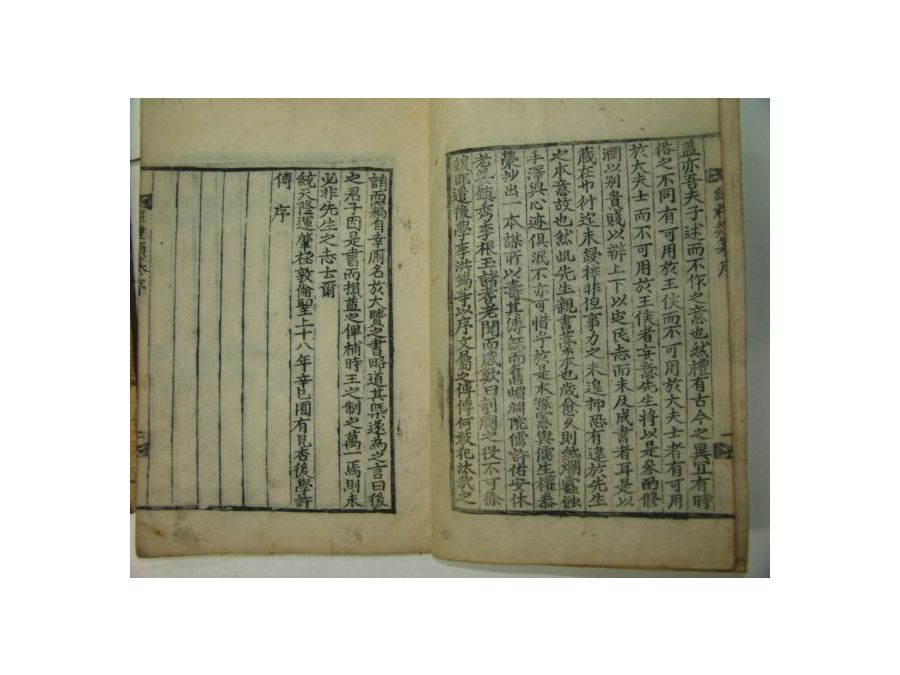 盖亦吾夫子述而不作之意也然禮有古今之異宜有時
俗之不同有可用於王侯而不可用於大夫士者有可用
於大夫士而不可用於王侯者妄意先生將以是參酌修
潤以別貴賤以辨上下以定民志而未及成書者耳是以
藏在巾衍迄未鋟梓非但事力之未遑抑恐有違於先生
之本意故也然此先生親書藁本也歲愈久則紙爛蠹蝕
手澤與心迹俱泯不亦可惜乎於是本縣憲與儒生權泰
榮抄出一本謀所以壽其傳而舊嵋院儒許佑安休
老鎮秀李根玉諸耆老聞而感歎曰剞劂之役不可徐
緩即遣後學李洪錫等以序文屬之傳傳何敢犯汰哉之
誚而竊自幸厠名於大賢之書略道其槩遂為之言曰後
之君子因是書而損益之俾補時王之制之萬一焉則未
必非先生之志士爾
統天隆運肇極敦倫聖上十八年辛巳圉有見杏後學許
傳序